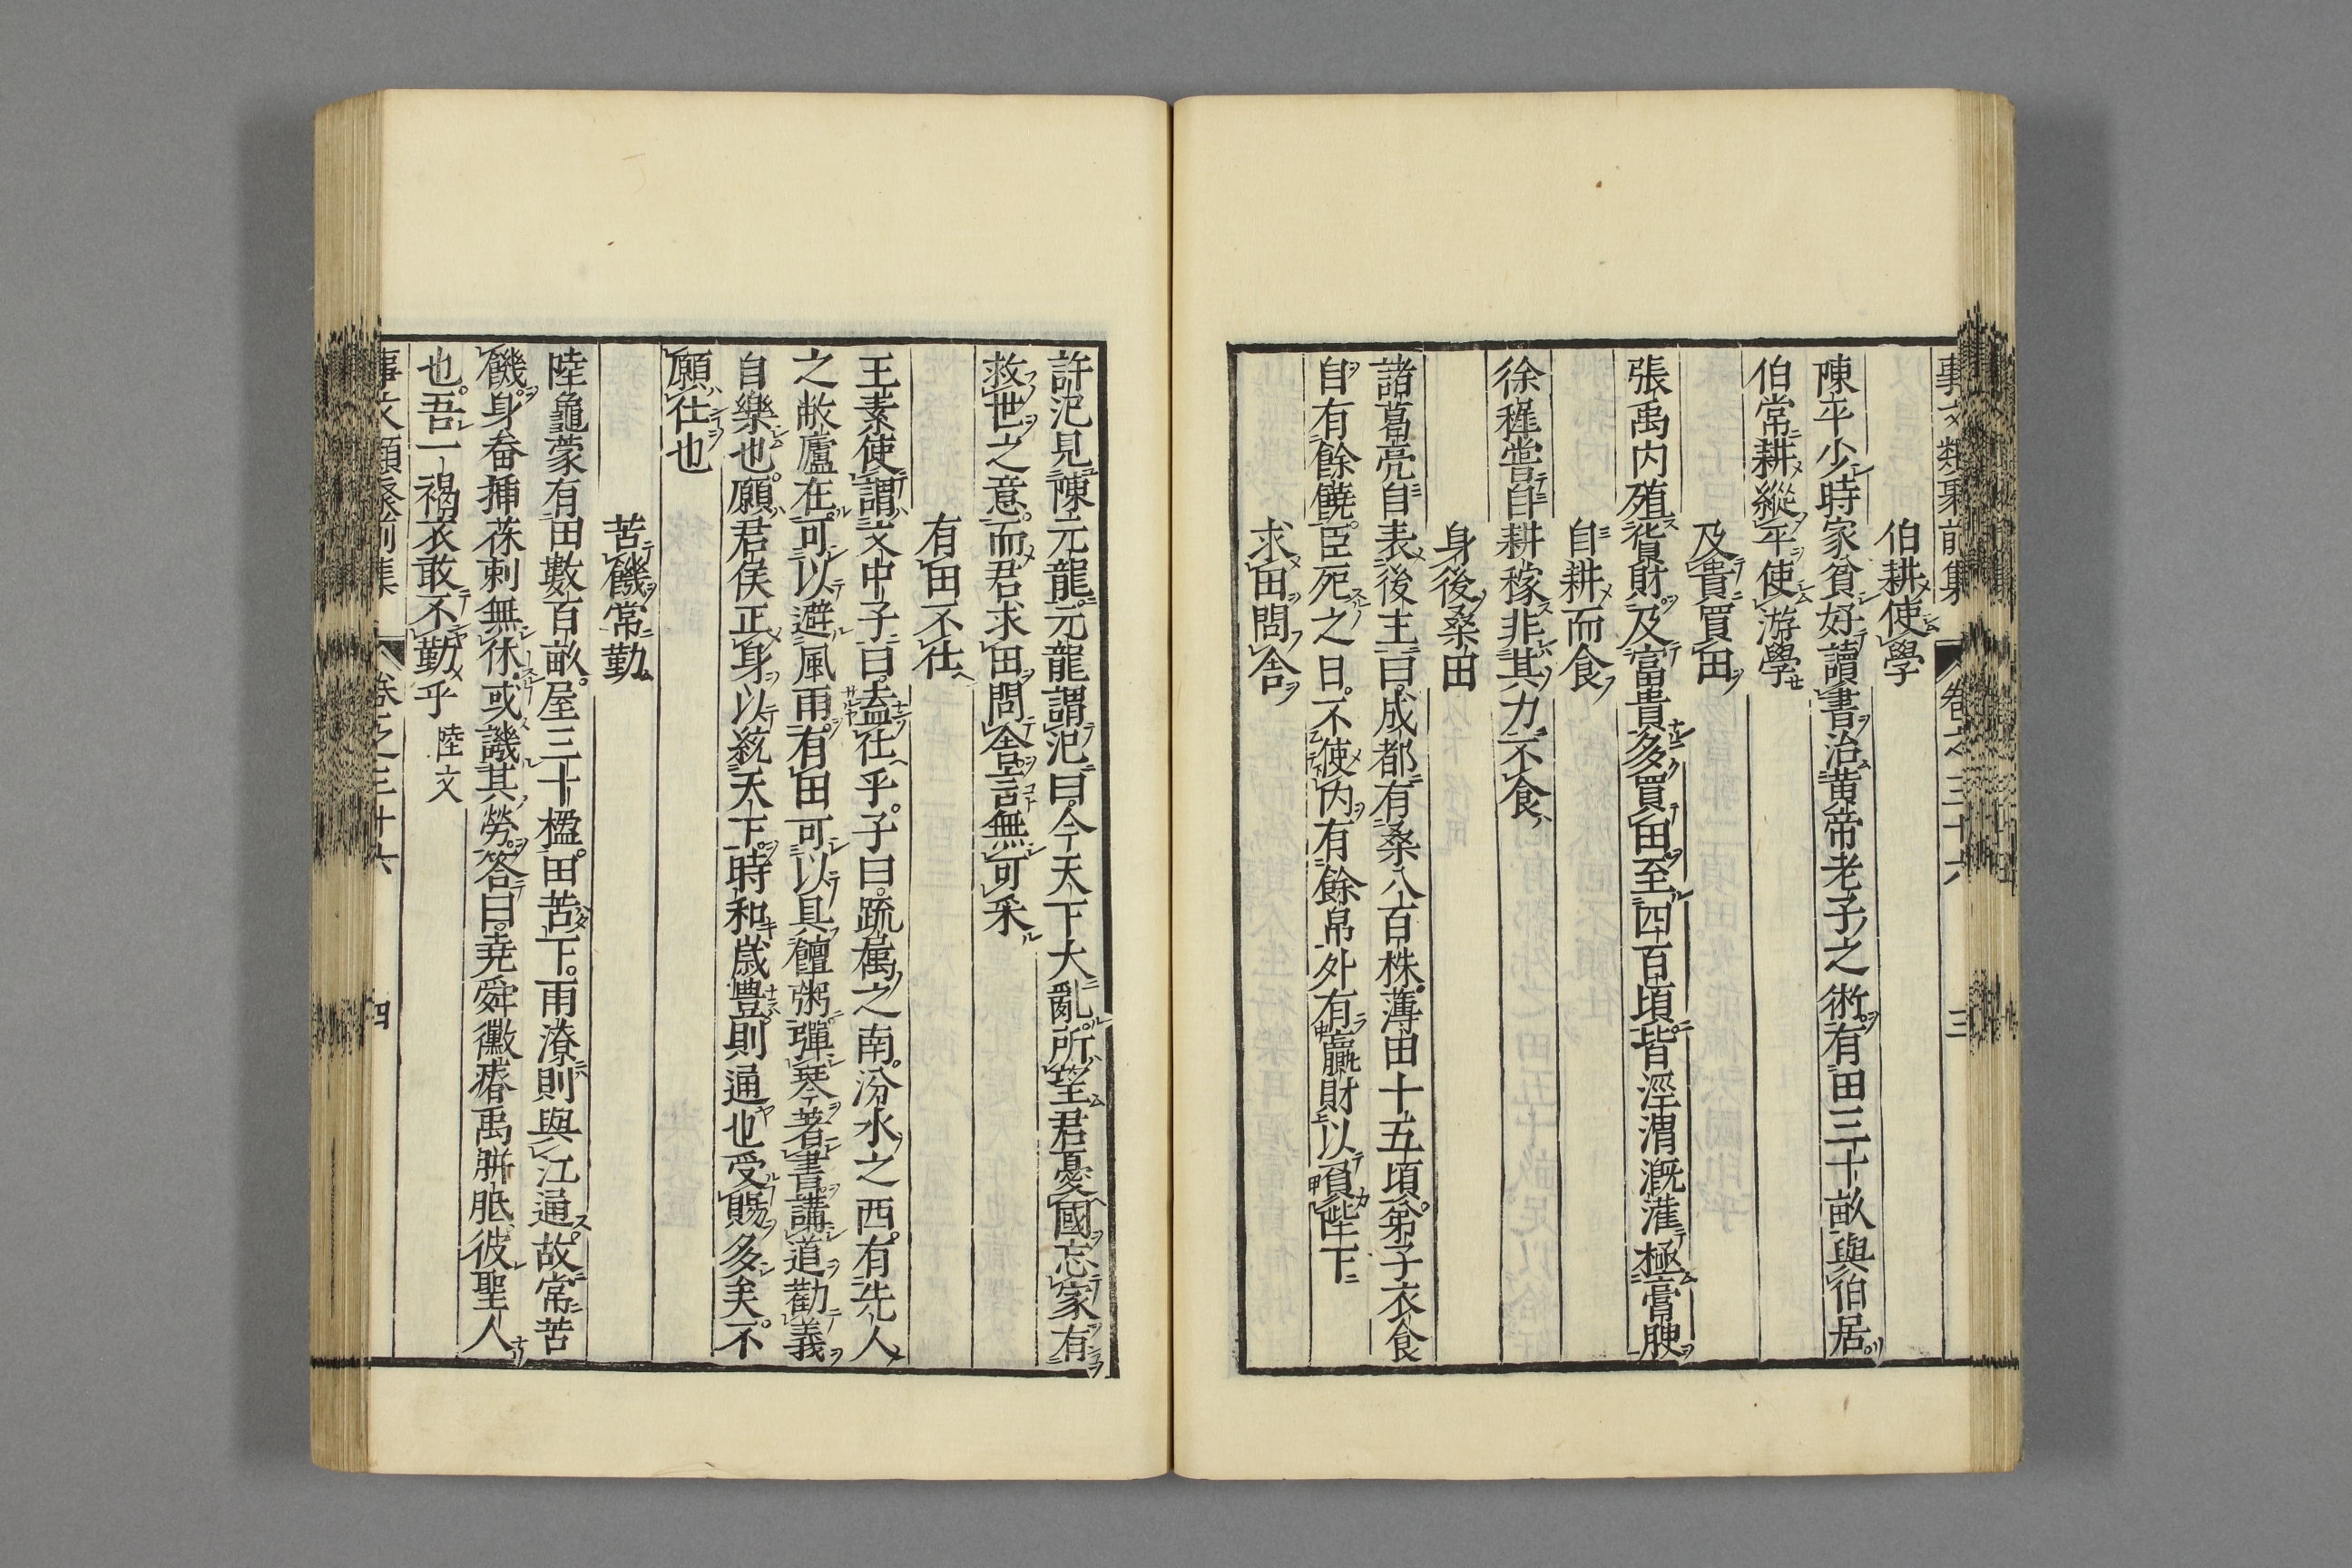 事文類聚前集 卷之三十六 三
伯耕使學
陳平少時家貧好讀書治黄帝老子之術有田三十畝與伯居
伯常耕縱平使游學
及貴買田
張禹内殖貨財及富貴多買田至四百頃皆涇渭溉灌極膏腴
自耕而食
徐穉嘗自耕稼非其力不食
身後桑田
諸葛亮自表後主曰成都有桑八百株薄田十五頃。弟子衣食
自有餘饒。臣死之日。不使内有餘帛外有贏財以負陛下
求田問舍
許汜見陳元龍。元龍謂汜曰今天下大亂。所望君憂國忘家有
救世之意。而君求田問舍。言無可采
有田不仕
王素使謂文中子曰。盍仕乎。子曰。疏属之南。汾水之西。有先人
之敝廬在。可以避風雨。有田可以具饘粥。彈琴著書。講道勸義
自樂也。願君侯正身以統天下。時和歳豊。則通也受賜多矣。不
願仕也
苦饑常勤
陸龜蒙有田數百畝。屋三十楹。田苦下。雨潦則與江通。故常苦
饑。身畚揷茠刺無休。或譏其勞。答曰。堯舜黴瘠禹胼胝。彼聖人
也。吾一褐衣敢不勤乎 陸文
事文類聚前集 卷之三十六 四